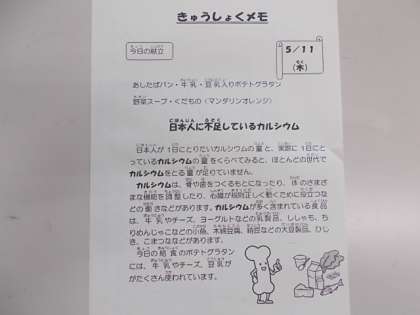 きゅうしょくメモ
今日の献立
5/11
(木)
あしたばパン・牛乳・豆乳入りポテトグラタン
野菜スープ・くだもの(マンダリンオレンジ)
日本人に不足しているカルシウム
日本人が1日にとりたいカルシウムの量と、実際に1日にと
っているカルシウムの量をくらべてみると、ほとんどの世代で
カルシウムをとる量が足りていません。
カルシウムは、骨や歯をつくるもとになったり、体のさまざ
まな機能を調整したり、心臓が規則正しく動くために役立つな
どの働きなどがあります。カルシウムが多く含まれている食品
は、牛乳やチーズ、ヨーグルトなどの乳製品、ししゃも、ち
りめんじゃこなどの小魚、木綿豆腐、納豆などの大豆製品、ひじ
き、こまつななどがあります。
今日の給食のポテトグラタン
には、牛乳やチーズ、豆乳が
がたくさん使われています。